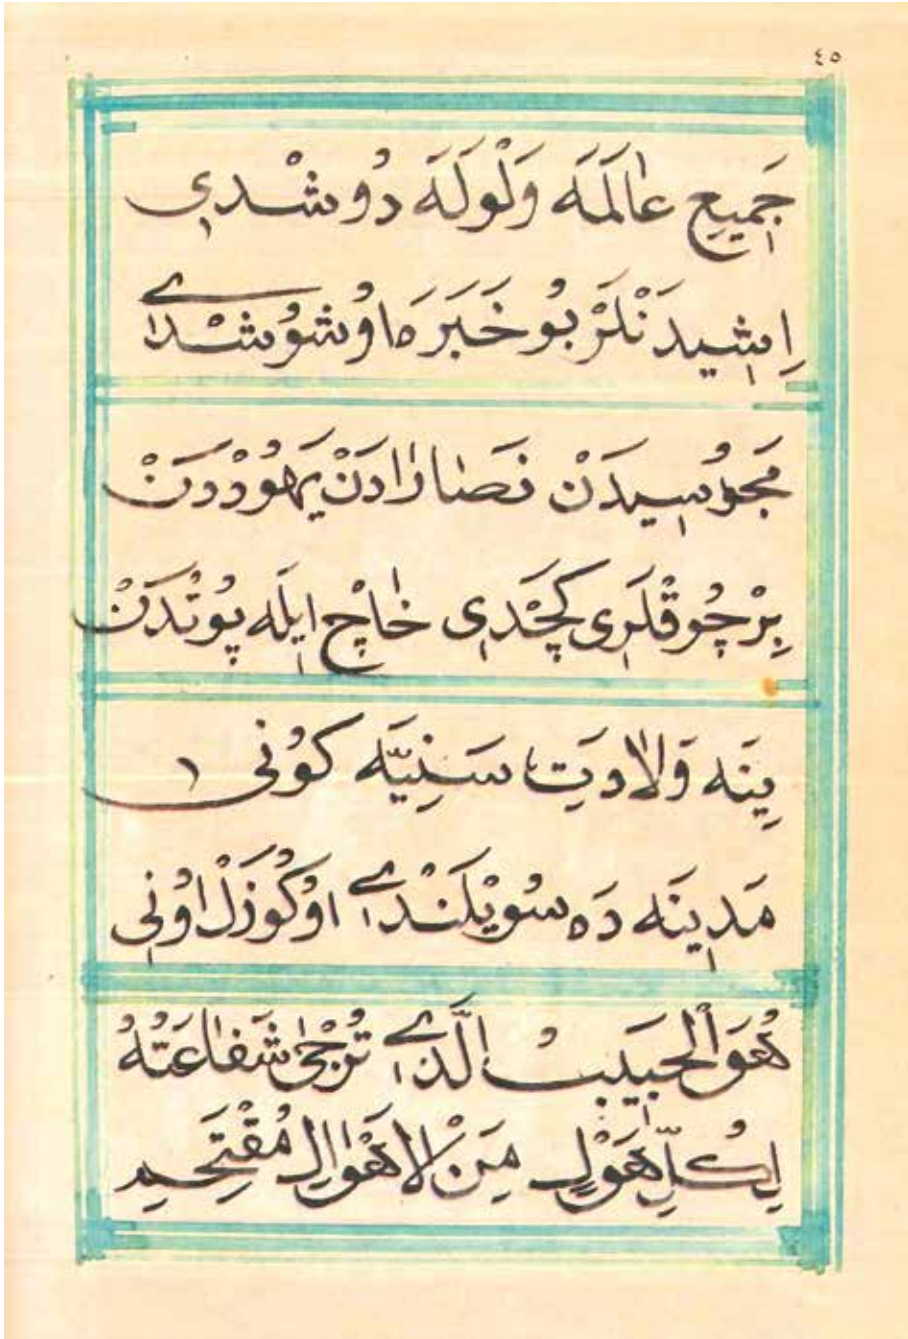 ٤٥
جَمِيعِ عَالَمَه وَلْوَلَه دُوشْدِي
اِشِيدَنْلَرْ بُو خَبَرَه اوُشُوشْدِي
مَجُوسِيدَنْ نَصَارَادَنْ يَهُودْدَنْ
بِرْچُوقْلَرِي كَچْدِي خَاچْ اِيلَه پُوتْدَنْ
يِنَه وَلَادَتِ سَنِيَّه كُونِي
مَدِينَه دَه سُويْلَنْدِي اوُ كُوزَلْ اوُنِي
هُوَ الْحَبِيبُ الَّذِي تُرْجَى شَفَاعَتُهُ
لِكُلِّ هَوْلٍ مِنَ الْاَهْوَالِ مُقْتَحِمِ